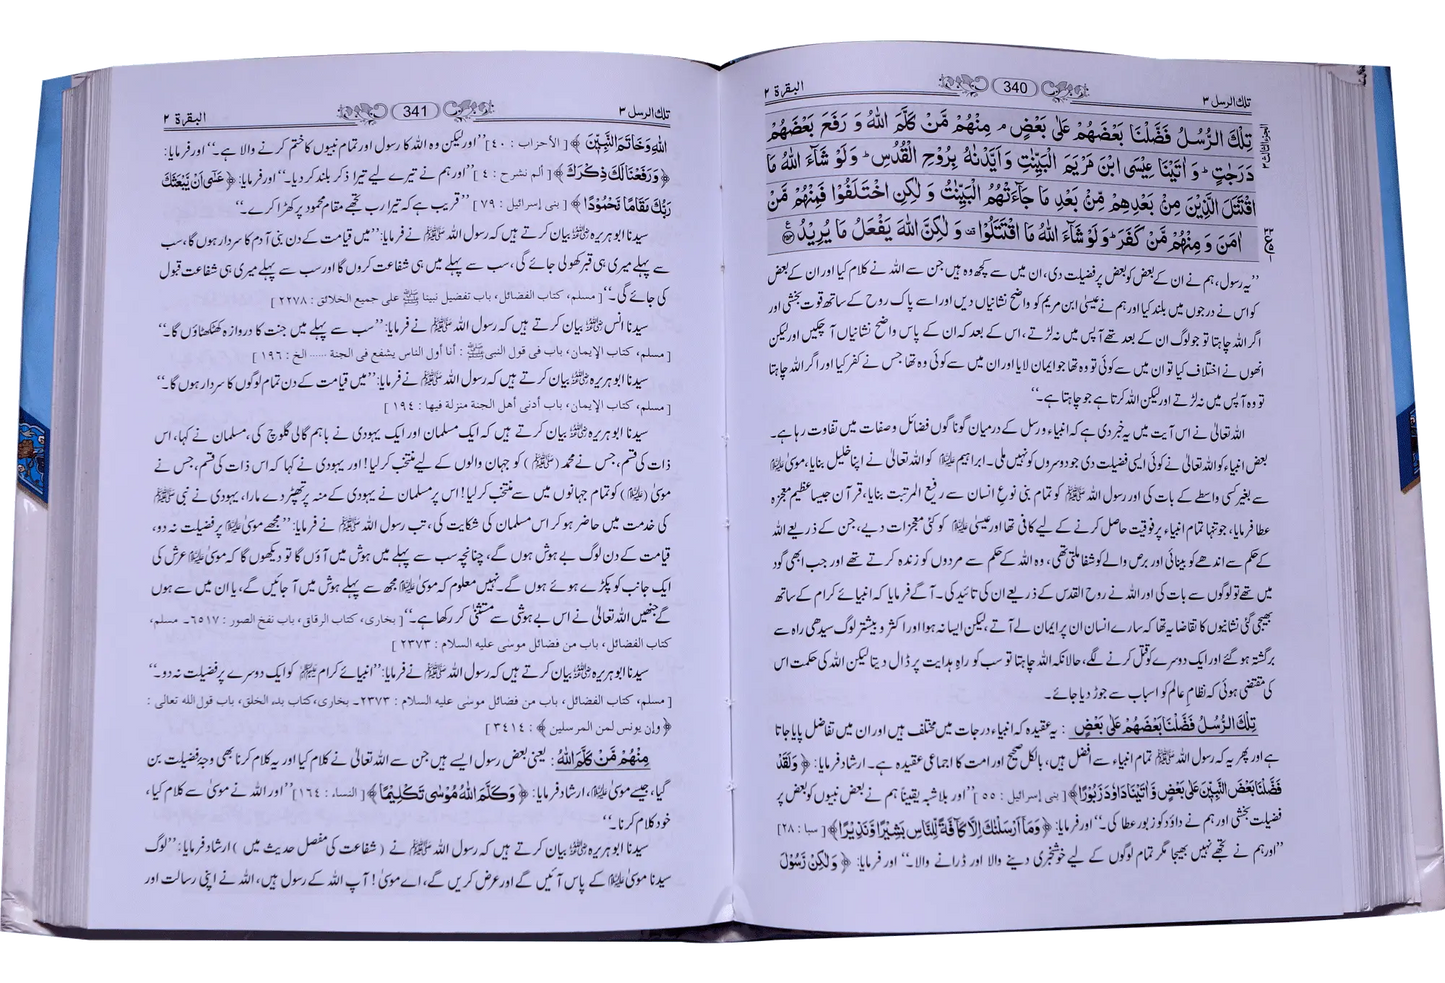 تلك الرسل ٣
340
البقرة ٢
تِلْكَ الرُّسُلُ فَضَّلْنَا بَعْضَهُمْ عَلٰى بَعْضٍ ۘ مِنْهُمْ مَّنْ كَلَّمَ اللّٰهُ وَ رَفَعَ بَعْضَهُمْ
دَرَجٰتٍ ؕ وَ اٰتَيْنَا عِيْسَى ابْنَ مَرْيَمَ الْبَيِّنٰتِ وَ اَيَّدْنٰهُ بِرُوْحِ الْقُدُسِ ؕ وَ لَوْ شَآءَ اللّٰهُ مَا
اقْتَتَلَ الَّذِيْنَ مِنْۢ بَعْدِهِمْ مِّنْۢ بَعْدِ مَا جَآءَتْهُمُ الْبَيِّنٰتُ وَ لٰكِنِ اخْتَلَفُوْا فَمِنْهُمْ مَّنْ
اٰمَنَ وَ مِنْهُمْ مَّنْ كَفَرَ ؕ وَ لَوْ شَآءَ اللّٰهُ مَا اقْتَتَلُوْا ۫ وَ لٰكِنَّ اللّٰهَ يَفْعَلُ مَا يُرِيْدُ
”یہ رسول، ہم نے ان کے بعض کو بعض پر فضیلت دی، ان میں سے کچھ وہ ہیں جن سے اللہ نے کلام کیا اور ان کے بعض
کو اس نے درجوں میں بلند کیا اور ہم نے عیسیٰ ابن مریم کو واضح نشانیاں دیں اور اسے پاک روح کے ساتھ قوت بخشی اور
اگر اللہ چاہتا تو جو لوگ ان کے بعد تھے آپس میں نہ لڑتے، اس کے بعد کہ ان کے پاس واضح نشانیاں آ چکیں اور لیکن
انھوں نے اختلاف کیا تو ان میں سے کوئی تو وہ تھا جو ایمان لایا اور ان میں سے کوئی وہ تھا جس نے کفر کیا اور اگر اللہ چاہتا
تو وہ آپس میں نہ لڑتے اور لیکن اللہ کرتا ہے جو چاہتا ہے۔“
اللہ تعالیٰ نے اس آیت میں یہ خبر دی ہے کہ انبیاء و رسل کے درمیان گوناگوں فضائل و صفات میں تفاوت رہا ہے۔
بعض انبیاء کو اللہ تعالیٰ نے کوئی ایسی فضیلت دی جو دوسروں کو نہیں ملی۔ ابراہیم علیہ السلام کو اللہ تعالیٰ نے اپنا خلیل بنایا، موسیٰ علیہ السلام
سے بغیر کسی واسطے کے بات کی اور رسول اللہ ﷺ کو تمام بنی نوع انسان سے رفیع المرتبت بنایا، قرآن جیسا عظیم معجزہ
عطا فرمایا، جو تنہا تمام انبیاء پر فوقیت حاصل کرنے کے لیے کافی تھا اور عیسیٰ علیہ السلام کو کئی معجزات دیے، جن کے ذریعے اللہ
کے حکم سے اندھے کو بینائی اور برص والے کو شفا ملتی تھی، وہ اللہ کے حکم سے مردوں کو زندہ کرتے تھے اور جب ابھی گود
میں تھے تو لوگوں سے بات کی اور اللہ نے روح القدس کے ذریعے ان کی تائید کی۔ آگے فرمایا کہ انبیائے کرام کے ساتھ
بھیجی گئی نشانیوں کا تقاضا یہ تھا کہ سارے انسان ان پر ایمان لے آتے، لیکن ایسا نہ ہوا اور اکثر و بیشتر لوگ سیدھی راہ سے
برگشتہ ہو گئے اور ایک دوسرے کو قتل کرنے لگے، حالانکہ اللہ چاہتا تو سب کو راہِ ہدایت پر ڈال دیتا لیکن اللہ کی حکمت اس
کی مقتضی ہوئی کہ نظامِ عالم کو اسباب سے جوڑ دیا جائے۔
تِلْكَ الرُّسُلُ فَضَّلْنَا بَعْضَهُمْ عَلٰى بَعْضٍ : یہ عقیدہ کہ انبیاء درجات میں مختلف ہیں اور ان میں تفاضل پایا جاتا
ہے اور پھر یہ کہ رسول اللہ ﷺ تمام انبیاء سے افضل ہیں، بالکل صحیح اور امت کا اجماعی عقیدہ ہے۔ ارشاد فرمایا: ﴿ وَ لَقَدْ
فَضَّلْنَا بَعْضَ النَّبِيّٖنَ عَلٰى بَعْضٍ وَّ اٰتَيْنَا دَاوٗدَ زَبُوْرًا ﴾ [ بنی إسرائیل : ٥٥ ] ”اور بلاشبہ یقیناً ہم نے بعض نبیوں کو بعض پر
فضیلت بخشی اور ہم نے داؤد کو زبور عطا کی۔“ اور فرمایا: ﴿ وَ مَاۤ اَرْسَلْنٰكَ اِلَّا كَآفَّةً لِّلنَّاسِ بَشِيْرًا وَّ نَذِيْرًا ﴾ [ سبا : ٢٨ ]
”اور ہم نے تجھے نہیں بھیجا مگر تمام لوگوں کے لیے خوشخبری دینے والا اور ڈرانے والا۔“ اور فرمایا: ﴿ وَ لٰكِنْ رَّسُوْلَ
تلك الرسل ٣
341
البقرة ٢
اللّٰهِ وَ خَاتَمَ النَّبِيّٖنَ ﴾ [ الأحزاب : ٤٠ ] ”اور لیکن وہ اللہ کا رسول اور تمام نبیوں کا ختم کرنے والا ہے۔“ اور فرمایا:
﴿ وَ رَفَعْنَا لَكَ ذِكْرَكَ ﴾ [ ألم نشرح : ٤ ] ”اور ہم نے تیرے لیے تیرا ذکر بلند کر دیا۔“ اور فرمایا: ﴿ عَسٰۤى اَنْ يَّبْعَثَكَ
رَبُّكَ مَقَامًا مَّحْمُوْدًا ﴾ [ بنی إسرائیل : ٧٩ ] ”قریب ہے کہ تیرا رب تجھے مقام محمود پر کھڑا کرے۔“
سیدنا ابو ہریرہ رضی اللہ عنہ بیان کرتے ہیں کہ رسول اللہ ﷺ نے فرمایا: ”میں قیامت کے دن بنی آدم کا سردار ہوں گا، سب
سے پہلے میری ہی قبر کھولی جائے گی، سب سے پہلے میں ہی شفاعت کروں گا اور سب سے پہلے میری ہی شفاعت قبول
کی جائے گی۔“ [ مسلم، کتاب الفضائل، باب تفضیل نبینا ﷺ علی جمیع الخلائق : ٢٢٧٨ ]
سیدنا انس رضی اللہ عنہ بیان کرتے ہیں کہ رسول اللہ ﷺ نے فرمایا: ”سب سے پہلے میں جنت کا دروازہ کھٹکھٹاؤں گا۔“
[ مسلم، کتاب الإیمان، باب فی قول النبی ﷺ : أنا أول الناس یشفع فی الجنة ...... الخ : ١٩٦ ]
سیدنا ابو ہریرہ رضی اللہ عنہ بیان کرتے ہیں کہ رسول اللہ ﷺ نے فرمایا: ”میں قیامت کے دن تمام لوگوں کا سردار ہوں گا۔“
[ مسلم، کتاب الإیمان، باب أدنی أهل الجنة منزلة فیها : ١٩٤ ]
سیدنا ابو ہریرہ رضی اللہ عنہ بیان کرتے ہیں کہ ایک مسلمان اور ایک یہودی نے باہم گالی گلوچ کی، مسلمان نے کہا، اس
ذات کی قسم، جس نے محمد (ﷺ) کو جہان والوں کے لیے منتخب کر لیا! اور یہودی نے کہا کہ اس ذات کی قسم، جس نے
موسیٰ (علیہ السلام) کو تمام جہانوں میں سے منتخب کر لیا! اس پر مسلمان نے یہودی کے منہ پر تھپڑ دے مارا، یہودی نے نبی ﷺ
کی خدمت میں حاضر ہو کر اس مسلمان کی شکایت کی، تب رسول اللہ ﷺ نے فرمایا: ”مجھے موسیٰ علیہ السلام پر فضیلت نہ دو،
قیامت کے دن لوگ بے ہوش ہوں گے، چنانچہ سب سے پہلے میں ہوش میں آؤں گا تو دیکھوں گا کہ موسیٰ علیہ السلام عرش کی
ایک جانب کو پکڑے ہوئے ہوں گے۔ نہیں معلوم کہ موسیٰ علیہ السلام مجھ سے پہلے ہوش میں آ جائیں گے، یا ان میں سے ہوں
گے جنھیں اللہ تعالیٰ نے اس بے ہوشی سے مستثنیٰ کر رکھا ہے۔“ [ بخاری، کتاب الرقاق، باب نفخ الصور : ٦٥١٧۔ مسلم،
کتاب الفضائل، باب من فضائل موسی علیه السلام : ٢٣٧٣ ]
سیدنا ابو ہریرہ رضی اللہ عنہ بیان کرتے ہیں کہ رسول اللہ ﷺ نے فرمایا: ”انبیائے کرام علیہم السلام کو ایک دوسرے پر فضیلت نہ دو۔“
[ مسلم، کتاب الفضائل، باب من فضائل موسی علیه السلام : ٢٣٧٣۔ بخاری، کتاب بدء الخلق، باب قول الله تعالی :
﴿ وإن یونس لمن المرسلین ﴾ : ٣٤١٤ ]
مِنْهُمْ مَّنْ كَلَّمَ اللّٰهُ : یعنی بعض رسول ایسے ہیں جن سے اللہ تعالیٰ نے کلام کیا اور یہ کلام کرنا بھی وجۂ فضیلت بن
گیا، جیسے موسیٰ علیہ السلام، ارشاد فرمایا: ﴿ وَ كَلَّمَ اللّٰهُ مُوْسٰى تَكْلِيْمًا ﴾ [ النساء : ١٦٤ ] ”اور اللہ نے موسیٰ سے کلام کیا،
خود کلام کرنا۔“
سیدنا ابو ہریرہ رضی اللہ عنہ بیان کرتے ہیں کہ رسول اللہ ﷺ نے ( شفاعت کی مفصل حدیث میں ) ارشاد فرمایا: ”لوگ
سیدنا موسیٰ علیہ السلام کے پاس آئیں گے اور عرض کریں گے، اے موسیٰ! آپ اللہ کے رسول ہیں، اللہ نے اپنی رسالت اور